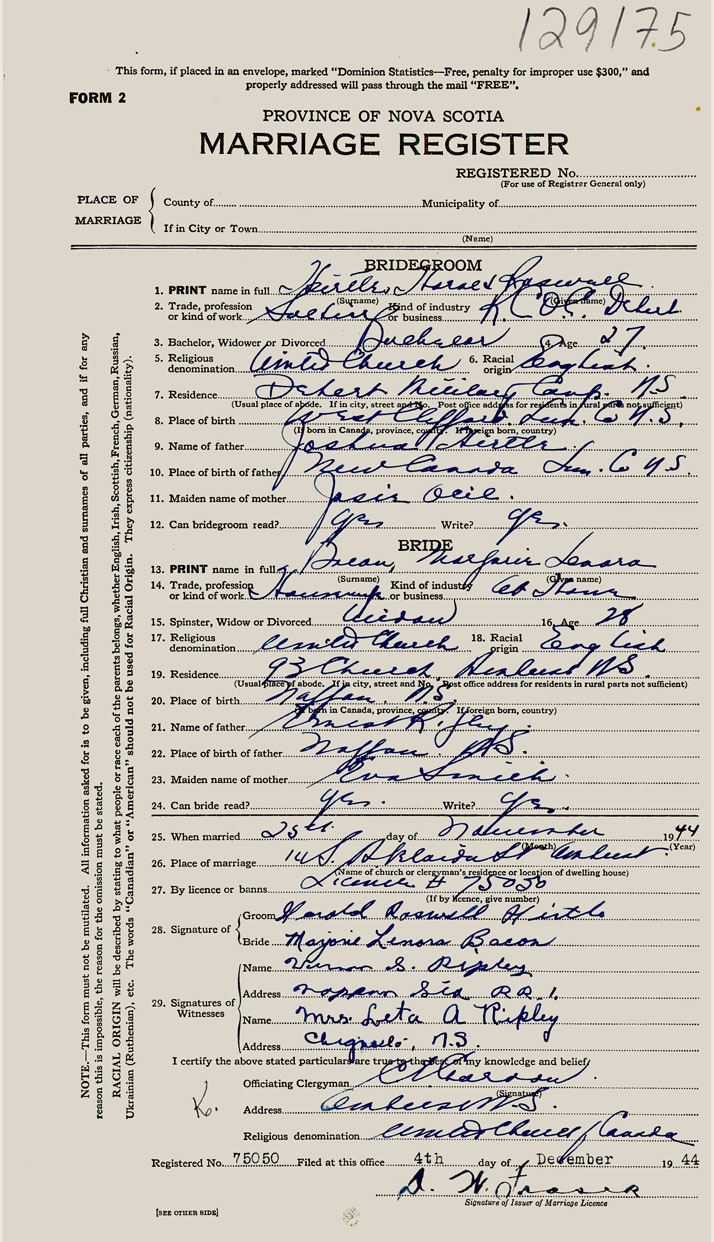 129175
This form, if placed in an envelope, marked "Dominion Statistics—Free, penalty for improper use $300," and
properly addressed will pass through the mail "FREE".
FORM 2
PROVINCE OF NOVA SCOTIA
MARRIAGE REGISTER
REGISTERED No.
(For use of Registrar General only)
PLACE OF MARRIAGE
County of Municipality of
If in City or Town
(Name)
BRIDEGROOM
1. PRINT name in full Hirtle, Harold Roswell
(Surname) (Given name)
2. Trade, profession or kind of work Soldier Kind of industry or business Debert
3. Bachelor, Widower or Divorced Bachelor 4. Age 27
5. Religious denomination United Church 6. Racial origin English
7. Residence Debert Military Camp. N.S.
(Usual place of abode. If in city, street and No. Post office address for residents in rural parts not sufficient)
8. Place of birth West Clifford. Lun. Co N.S.
(If born in Canada, province, county. If foreign born, country)
9. Name of father Joshua Hirtle
10. Place of birth of father New Canada Lun. Co N.S.
11. Maiden name of mother Josie
12. Can bridegroom read? yes Write? yes.
BRIDE
13. PRINT name in full Bacon, Marjorie Lenora
(Surname) (Given name)
14. Trade, profession or kind of work Housework Kind of industry or business At Home
15. Spinster, Widow or Divorced Widow 16. Age 28
17. Religious denomination United Church 18. Racial origin English
19. Residence 93 Church, Amherst N.S.
(Usual place of abode. If in city, street and No. Post office address for residents in rural parts not sufficient)
20. Place of birth Nappan, N.S.
(If born in Canada, province, county. If foreign born, country)
21. Name of father Ernest R.
22. Place of birth of father Nappan N.S.
23. Maiden name of mother Eva Smith.
24. Can bride read? yes. Write? yes.
25. When married 25th day of November 1944
(Month) (Year)
26. Place of marriage 14 S. Adelaide St Amherst.
(Name of church or clergyman's residence or location of dwelling house)
27. By licence or banns License # 75050
(If by licence, give number)
28. Signature of Groom Harold Roswell Hirtle
Bride Marjorie Lenora Bacon
29. Signatures of Witnesses Name Vernon S. Ripley
Address Nappan Sta RR 1.
Name Mrs. Leta A Ripley
Address Chignecto, N.S.
I certify the above stated particulars are true to the best of my knowledge and belief
Officiating Clergyman
(Signature)
K.
Address Amherst N.S.
Religious denomination United Church / Canada
Registered No. 75050 Filed at this office 4th day of December 1944
D. W. Fraser
Signature of Issuer of Marriage Licence
[SEE OTHER SIDE]
NOTE.—This form must not be mutilated. All information asked for is to be given, including full Christian and surnames of all parties, and if for any
reason this is impossible, the reason for the omission must be stated.
RACIAL ORIGIN will be described by stating to what people or race each of the parents belongs, whether English, Irish, Scottish, French, German, Russian,
Ukrainian (Ruthenian), etc. The words "Canadian" or "American" should not be used for Racial Origin. They express citizenship (nationality).